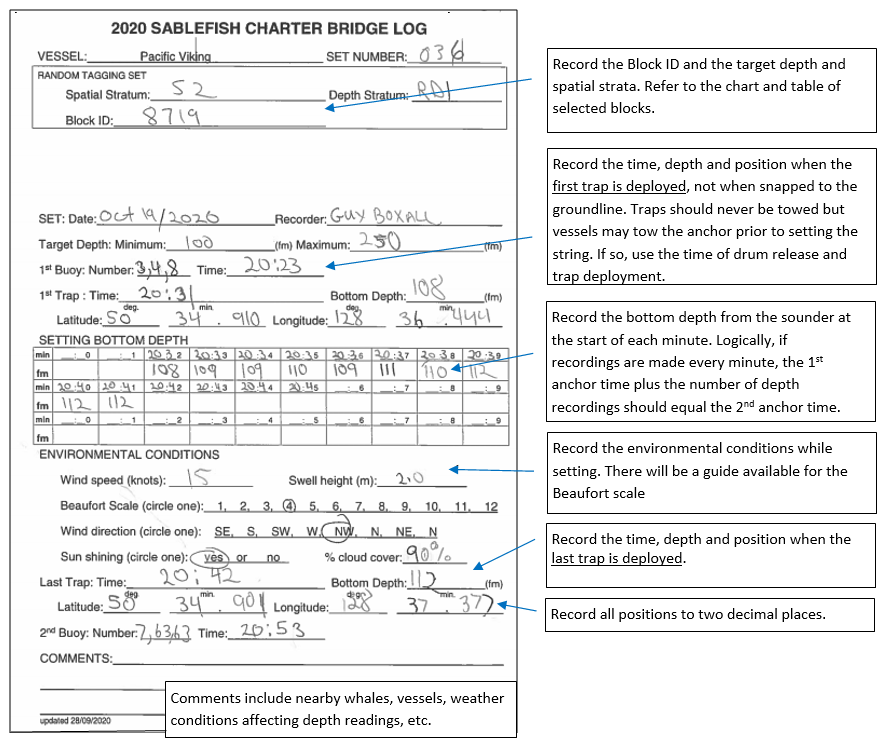 2020 SABLEFISH CHARTER BRIDGE LOG
VESSEL: Pacific Viking SET NUMBER: 036
RANDOM TAGGING SET
Spatial Stratum: S2 Depth Stratum: RD1
Block ID: 8719
SET: Date: Oct 19/2020 Recorder: GUY BOXALL
Target Depth: Minimum: 100 (fm) Maximum: 250 (fm)
1st Buoy: Number: 3,4,8 Time: 20:23
1st Trap : Time: 20:31 Bottom Depth: 108 (fm)
deg. min. deg. min.
Latitude: 50 34 . 910 Longitude: 128 36 . 444
SETTING BOTTOM DEPTH
min __:_0 __:_1 20:32 20:33 20:34 20:35 20:36 20:37 20:38 20:39
fm 108 109 109 110 109 111 110 112
min 20:40 20:41 20:42 20:43 20:44 20:45 __:_6 __:_7 __:_8 __:_9
fm 112 112
min __:_0 __:_1 __:_2 __:_3 __:_4 __:_5 __:_6 __:_7 __:_8 __:_9
fm
ENVIRONMENTAL CONDITIONS
Wind speed (knots): 15 Swell height (m): 2.0
Beaufort Scale (circle one): 1, 2, 3, 4 5, 6, 7, 8, 9, 10, 11, 12
Wind direction (circle one): SE, S, SW, W, NW, N, NE, N
Sun shining (circle one): yes or no % cloud cover: 90%
Last Trap: Time: 20:42 Bottom Depth: 112 (fm)
deg. min. deg. min.
Latitude: 50 34 . 901 Longitude: 128 37 . 377
2nd Buoy: Number: 7,63,63 Time: 20:53
COMMENTS:
updated 28/09/2020
Record the Block ID and the target depth and
spatial strata. Refer to the chart and table of
selected blocks.
Record the time, depth and position when the
first trap is deployed, not when snapped to the
groundline. Traps should never be towed but
vessels may tow the anchor prior to setting the
string. If so, use the time of drum release and
trap deployment.
Record the bottom depth from the sounder at
the start of each minute. Logically, if
recordings are made every minute, the 1st
anchor time plus the number of depth
recordings should equal the 2nd anchor time.
Record the environmental conditions while
setting. There will be a guide available for the
Beaufort scale
Record the time, depth and position when the
last trap is deployed.
Record all positions to two decimal places.
Comments include nearby whales, vessels, weather
conditions affecting depth readings, etc.